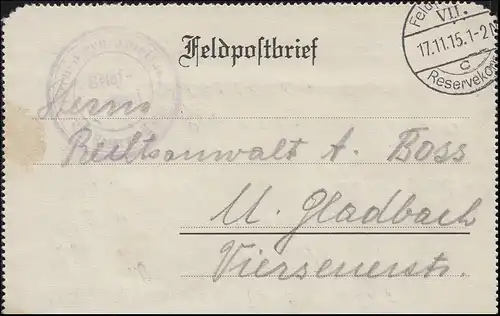 Feldpostbrief
VII.
17.11.15.1-2
c
Reservekor
Brief-
Herrn
Rechtsanwalt A. Boss
M. Gladbach
Viersenerstr.